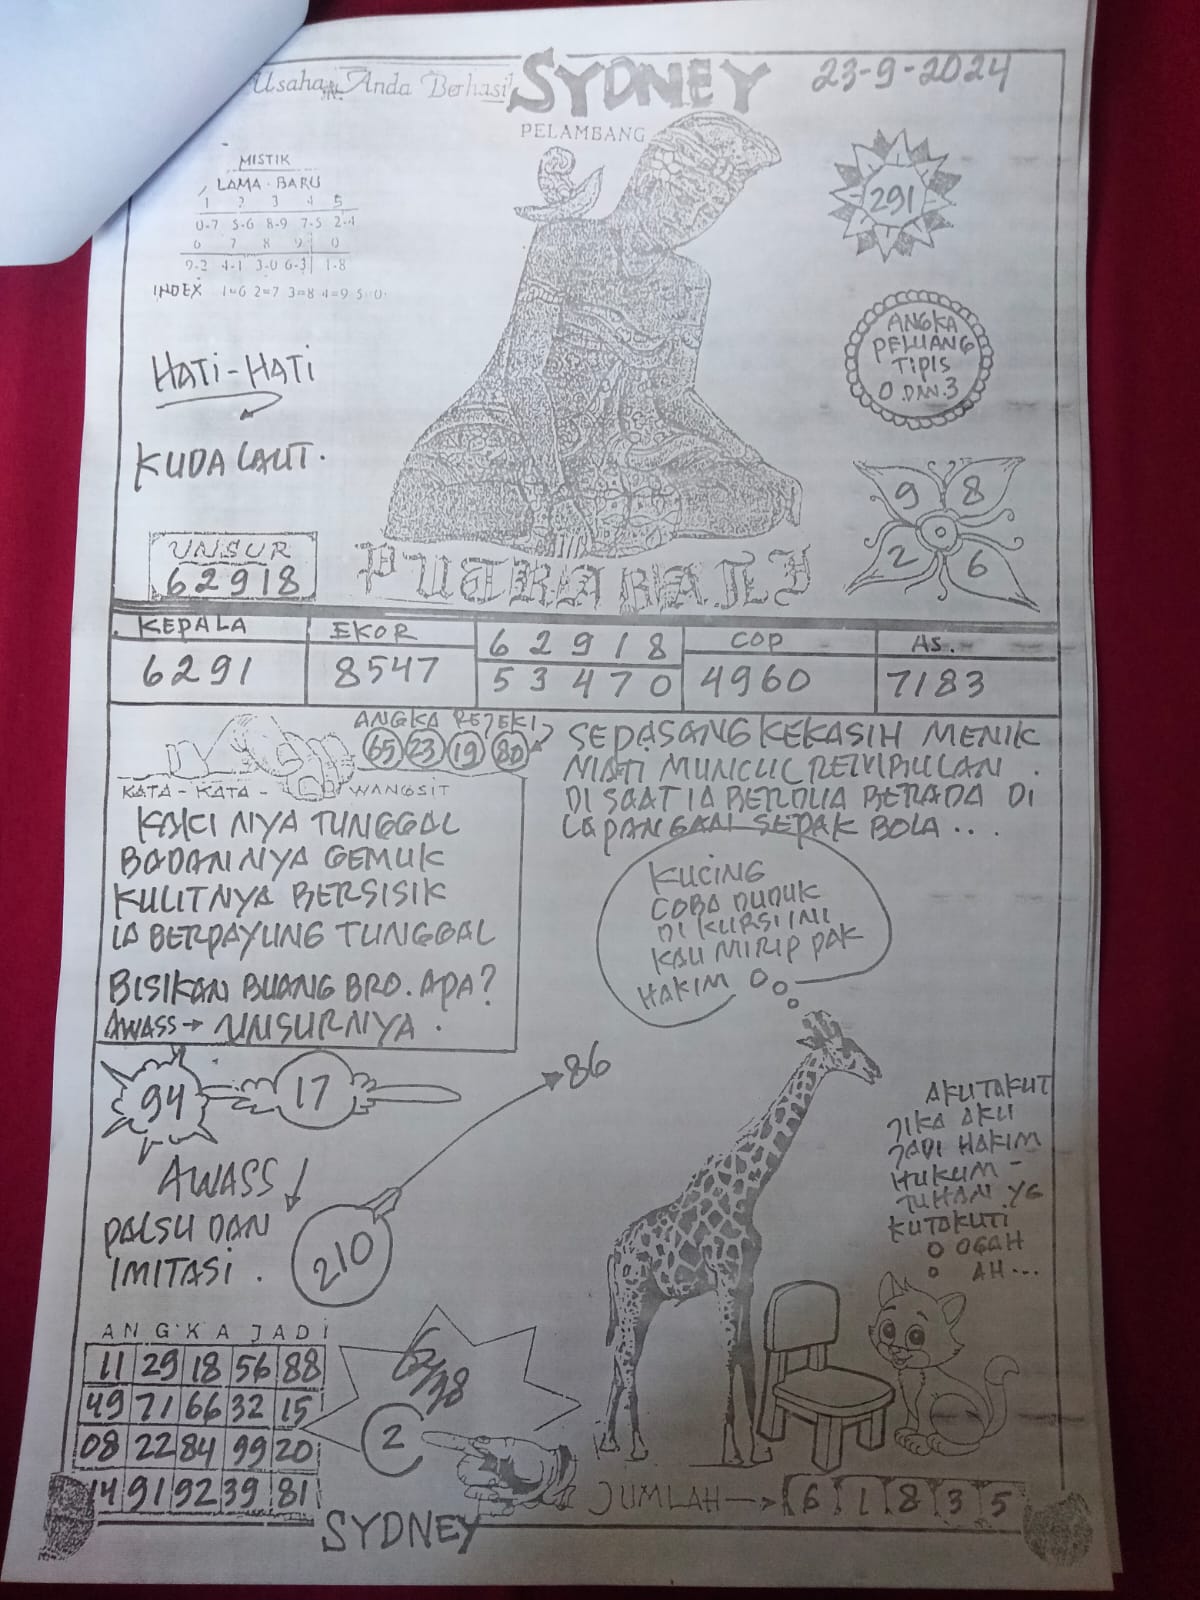 Usaha Anda Berhasil SYDNEY 23-9-2024
PELAMBANG
MISTIK
LAMA - BARU
1 2 3 4 5
0-7 5-6 8-9 7-5 2-4
6 7 8 9 0
9-2 4-1 3-0 6-3 1-8
INDEX 1=6 2=7 3=8 4=9 5=0
291
ANGKA
PELUANG
TIPIS
0 DAN.3
HATI-HATI
KUDA LAUT.
9 8
2 6
UNSUR
62918
PUTRA BALI
KEPALA EKOR 62918 COP AS.
6291 8547 53470 4960 7183
ANGKA REJEKI
65 23 19 80
KATA-KATA- WANGSIT
KAKI NYA TUNGGAL
BADANNYA GEMUK
KULITNYA BERSISIK
IA BERPAYUNG TUNGGAL
BISIKAN BUANG BRO. APA?
AWASS→ UNSURNYA.
SEPASANG KEKASIH MENIK
MATI MUNCUL REMBULAN.
DI SAAT IA BERDUA BERADA DI
LAPANGAN SEPAK BOLA...
KUCING
COBA DUDUK
DI KURSI INI
KAU MIRIP PAK
HAKIM
94 17
86
AWASS
PALSU DAN
IMITASI.
210
AKU TAKUT
JIKA AKU
JADI HAKIM
HUKUM-
TUHAN YG
KUTAKUTI
OGAH
AH...
ANGKA JADI
11 29 18 56 88
49 71 66 32 15
08 22 84 99 20
14 91 92 39 81
2
JUMLAH→ 6 1 8 3 5
SYDNEY